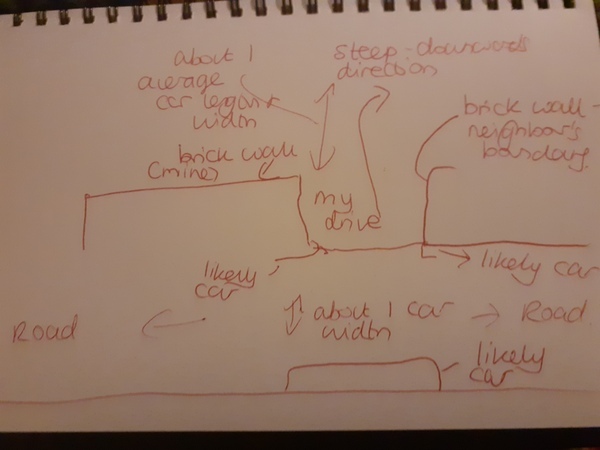 about 1
average
car length x
width
steep - downwards
direction
brick wall -
neighbour's
boundary.
brick wall
(mine)
my
drive
likely
car
likely car
Road
about 1 car
width
Road
likely
car